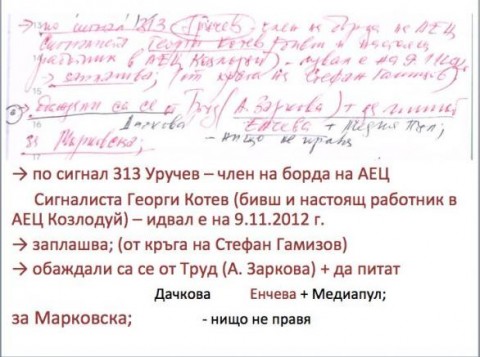 → по сигнал 313 Уручев член на борда на АЕЦ
Сигналиста Георги Котев (бивш и настоящ
работник в АЕЦ Козлодуй) – идвал е на 9.11.
→ заплашва; (от кръга на Стефан Гамизов)
→ обаждали са се от Труд (А. Заркова) + да питат
16
Дачкова Енчева + Медиапул
за Марковска; - нищо не правя
17
→ по сигнал 313 Уручев – член на борда на АЕЦ
Сигналиста Георги Котев (бивш и настоящ работник в
АЕЦ Козлодуй) – идвал е на 9.11.2012 г.
→ заплашва; (от кръга на Стефан Гамизов)
→ обаждали са се от Труд (А. Заркова) + да питат
Дачкова Енчева + Медиапул;
за Марковска; - нищо не правя